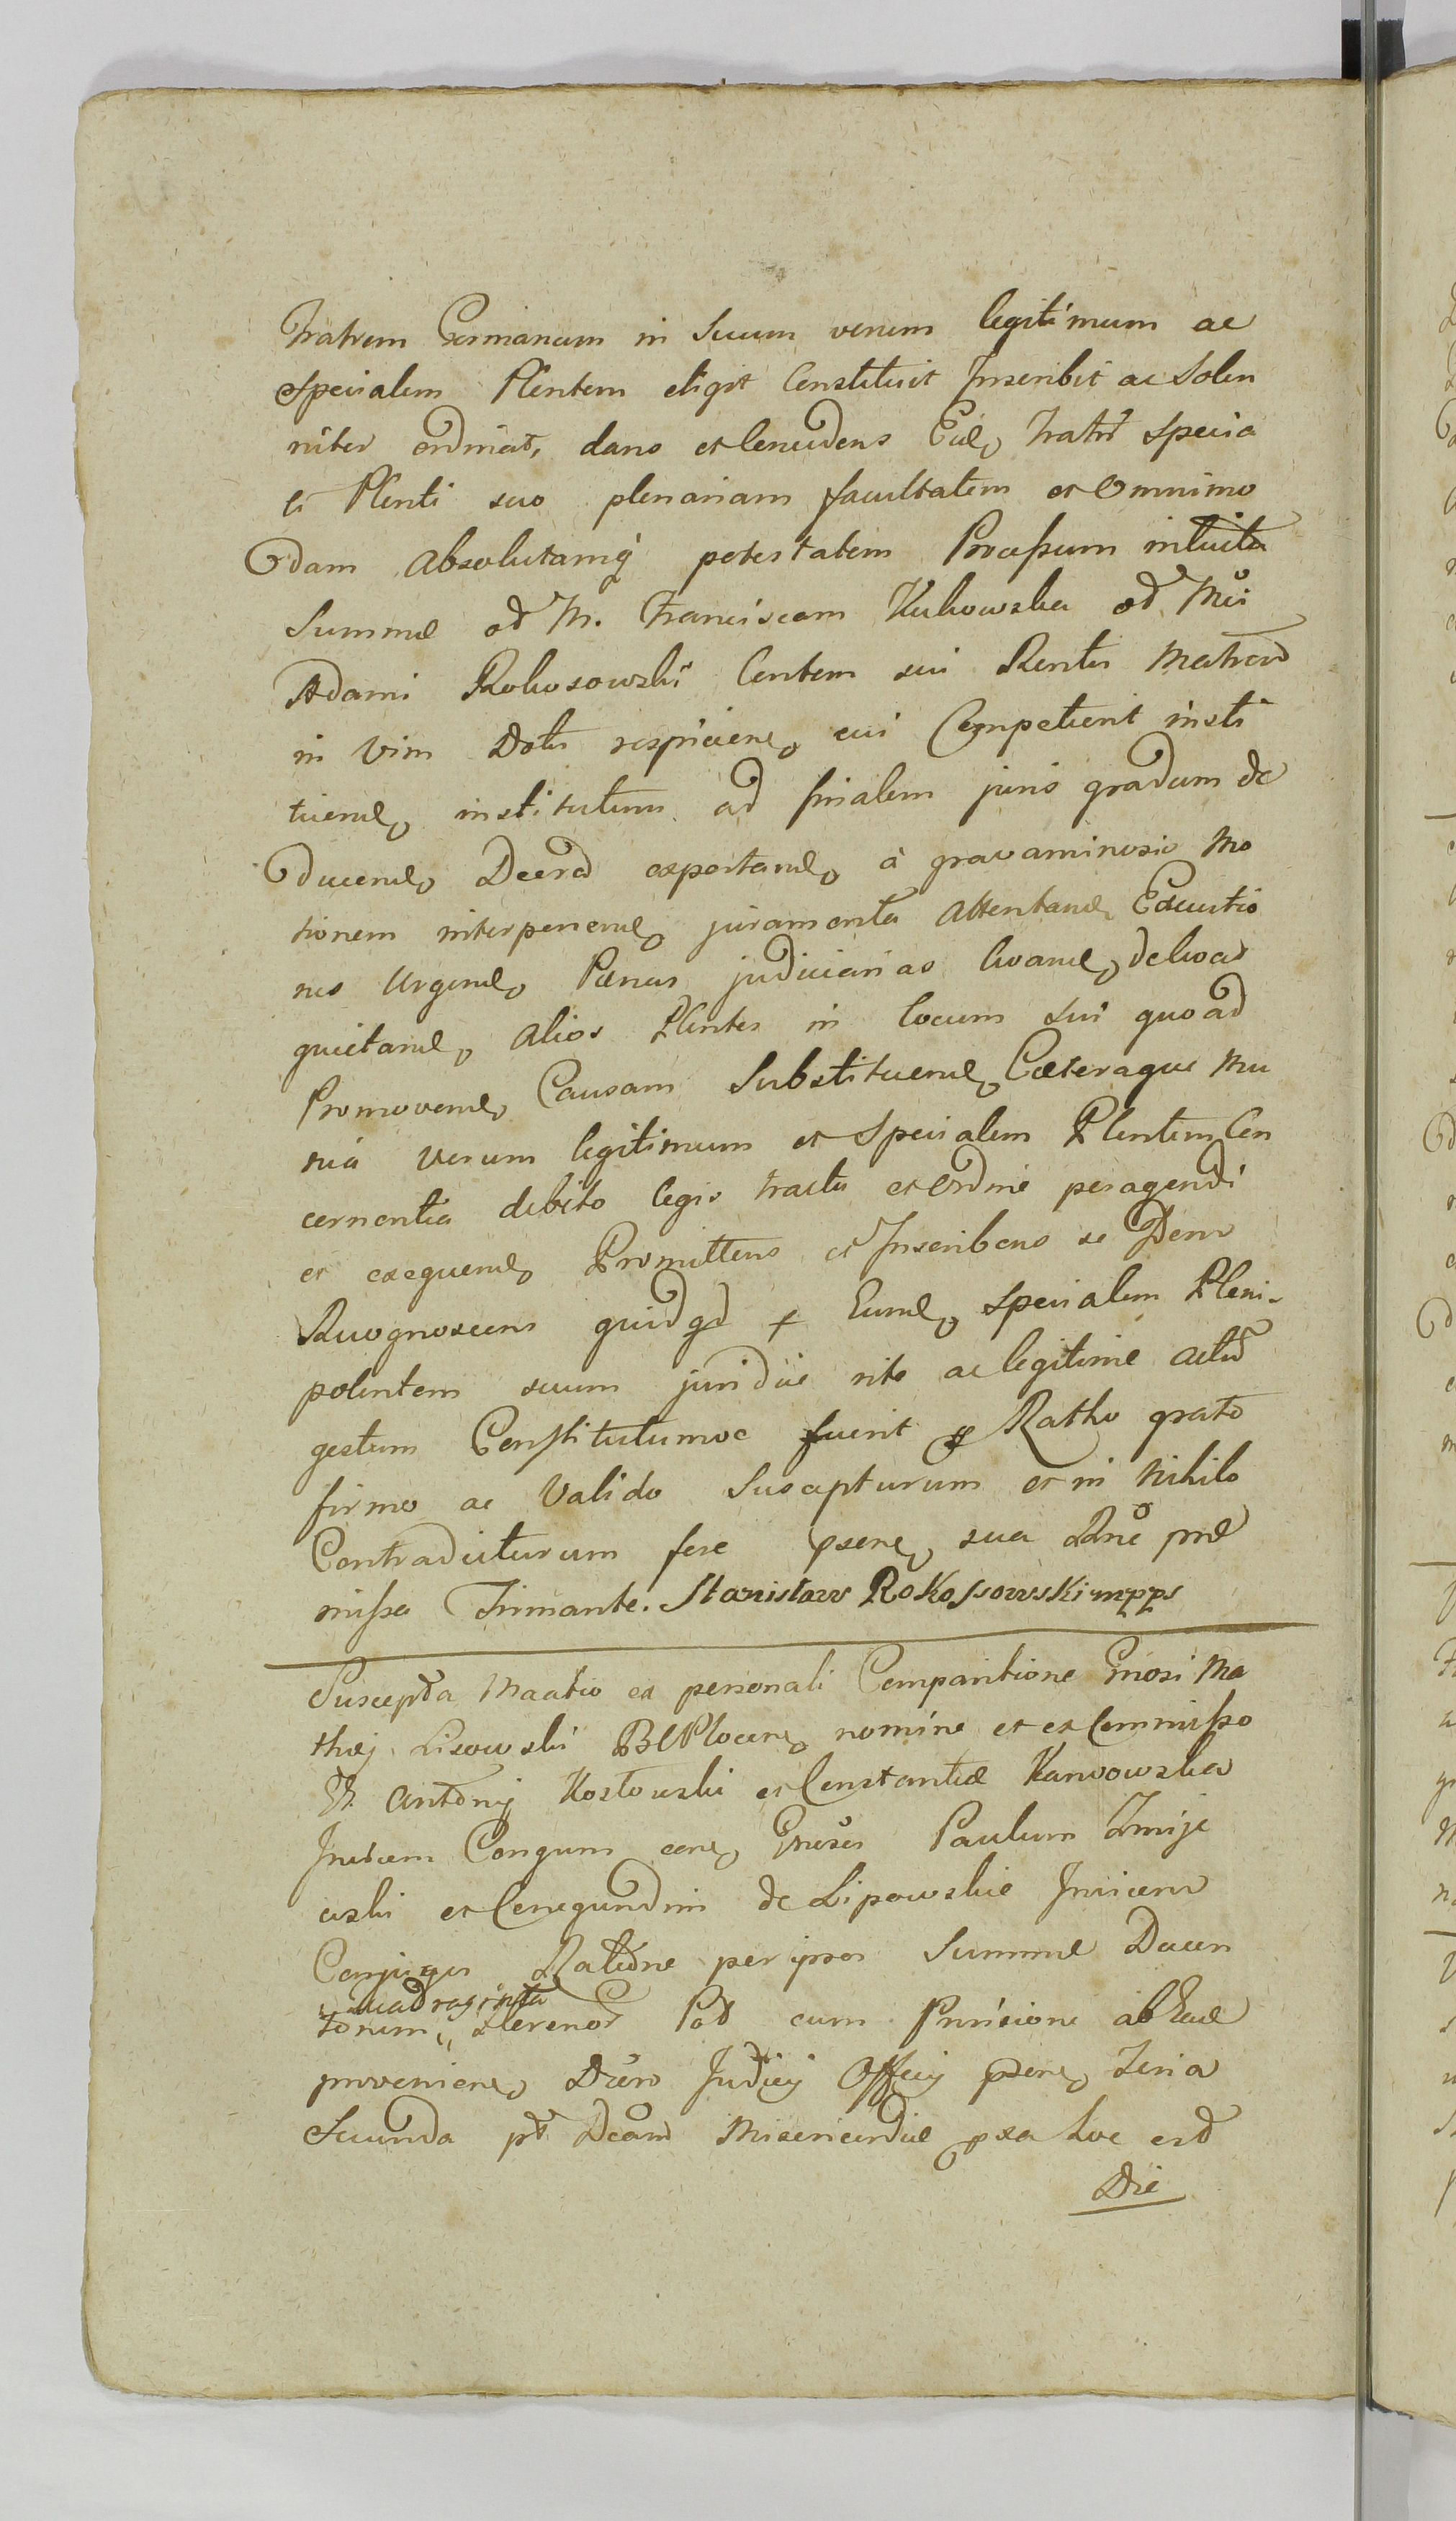 Fratrem Germanum in Suum verum legitimum ac
specialem Plentem eligit Constituit Inscribit ac Solen
niter ordinat, dans et Concedens Eid Fatri specia
li Plenti suo plenariam facultatem et Omnimo
dam Absolutamq potestatem Processum intuitu
Summæ ad M. Franciscam Kukowska ad Mci
Adami Rokosowski Contem sui Rentis Matrem
in Vim Dotis respicien cui Competierit insti
tuend institutum ad finalem juris gradum de
ducend Decreta exportand à gravaminosis Mo
tionem interponend juramenta Attentand Executio
nes Urgend Pænas judiciarias Levand de levat
quietand alios Plentes in locum sui quoad
Promovend Causam Substituend Cæteraque Mu
nia verum legitimum et Specialem Plentem Con
cernentia debito legis tractu et Ordine peragendi
et exequend Promittens et Inscribens se Idem
Recognoscens quidqd p Eund specialem Pleni-
potentem suum juridice rite ac legitime actu
gestum Constitutumve fuerit p Ratho grato
firmo ac Valido Suscepturum et in Nihilo
Contradicturum fore psene sua Rne præ
missa Firmante. Stanisław Rokossowski mpps
Suscepta Maatio ex personali Comparitione Gnosi Ma
thæj Lisowski BCPlocen nomine et ex Commisso
G. Antonij Kostowski et Constantiæ Karwowska
Invicem Congum cone Gnosos Paulum Zmije
wski et Cunegundim de Lipowskie Invicem
Conjuges Ratione per ipsos Summæ Ducen
torum quadraginta Flrenor Pol cum Provisione ab Ead
provenien Duen Judicij Officij psen Feria
Secunda pt Dcam Misericordiæ pxa hoc erd
Die